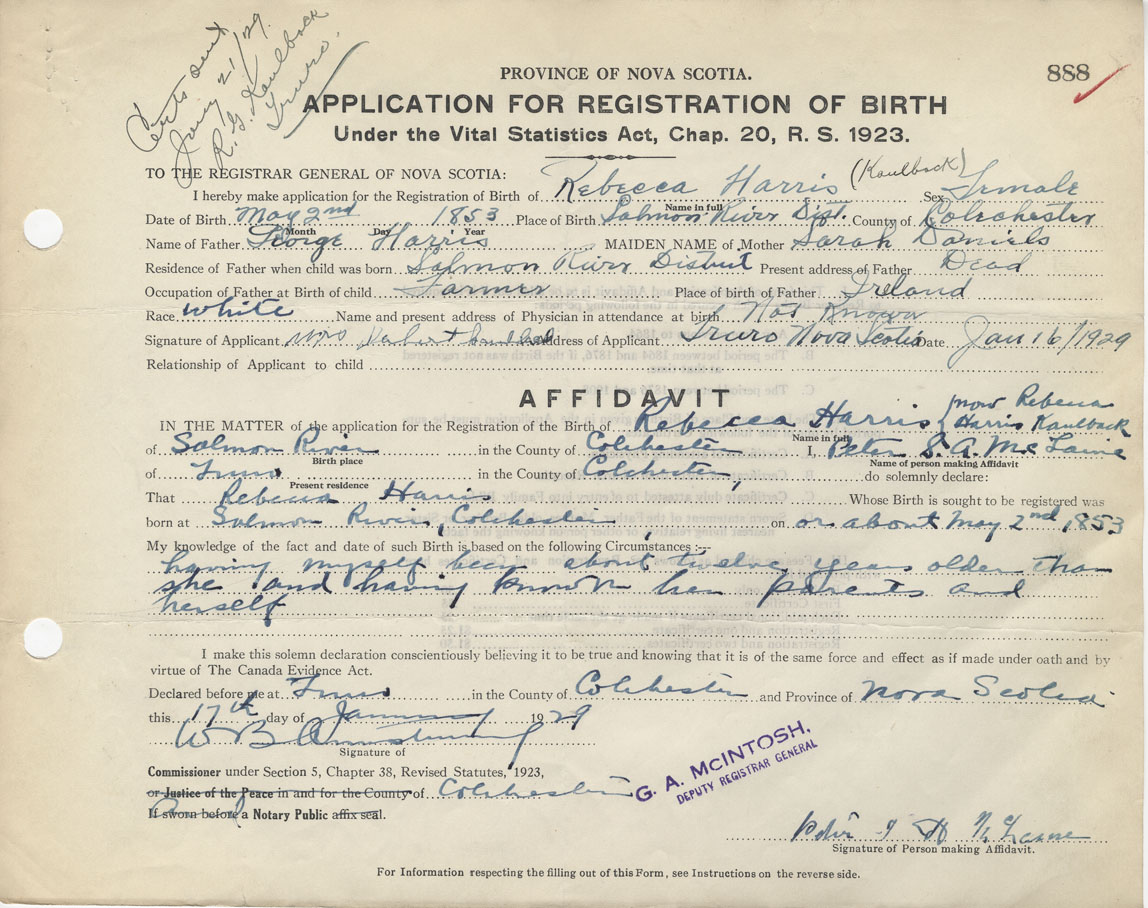 Certs sent
Jany 21/29.
R. G. Kaulback
Truro.
888
PROVINCE OF NOVA SCOTIA.
APPLICATION FOR REGISTRATION OF BIRTH
Under the Vital Statistics Act, Chap. 20, R. S. 1923.
TO THE REGISTRAR GENERAL OF NOVA SCOTIA:
I hereby make application for the Registration of Birth of Rebecca Harris (Kaulback) Sex Female
Name in full
Date of Birth May 2nd 1853 Place of Birth Salmon River Dist. County of Colchester
Month Day Year
Name of Father George Harris MAIDEN NAME of Mother Sarah Daniels
Residence of Father when child was born Salmon River District Present address of Father Dead
Occupation of Father at Birth of child Farmer Place of birth of Father Ireland
Race White Name and present address of Physician in attendance at birth Not Known
Signature of Applicant Mrs Address of Applicant Truro Nova Scotia Date Jan 16/1929
Relationship of Applicant to child
AFFIDAVIT
IN THE MATTER of the application for the Registration of the Birth of Rebecca Harris (now Rebecca Harris Kaulback
Name in full
of Salmon River in the County of Colchester I, Peter S. A. McLaine
Birth place Name of person making Affidavit
of Truro in the County of Colchester, do solemnly declare:
Present residence
That Rebecca Harris Whose Birth is sought to be registered was
born at Salmon River, Colchester on or about May 2nd, 1853
My knowledge of the fact and date of such Birth is based on the following Circumstances :—
having myself been about twelve years older than
she and having known her parents and
herself
I make this solemn declaration conscientiously believing it to be true and knowing that it is of the same force and effect as if made under oath and by
virtue of The Canada Evidence Act.
Declared before me at Truro in the County of Colchester and Province of Nova Scotia
this 17th day of January 1929
W B Armstrong
Signature of
Commissioner under Section 5, Chapter 38, Revised Statutes, 1923,
or Justice of the Peace in and for the County of Colchester
If sworn before a Notary Public affix seal.
G. A. McINTOSH,
DEPUTY REGISTRAR GENERAL
Signature of Person making Affidavit.
For Information respecting the filling out of this Form, see Instructions on the reverse side.